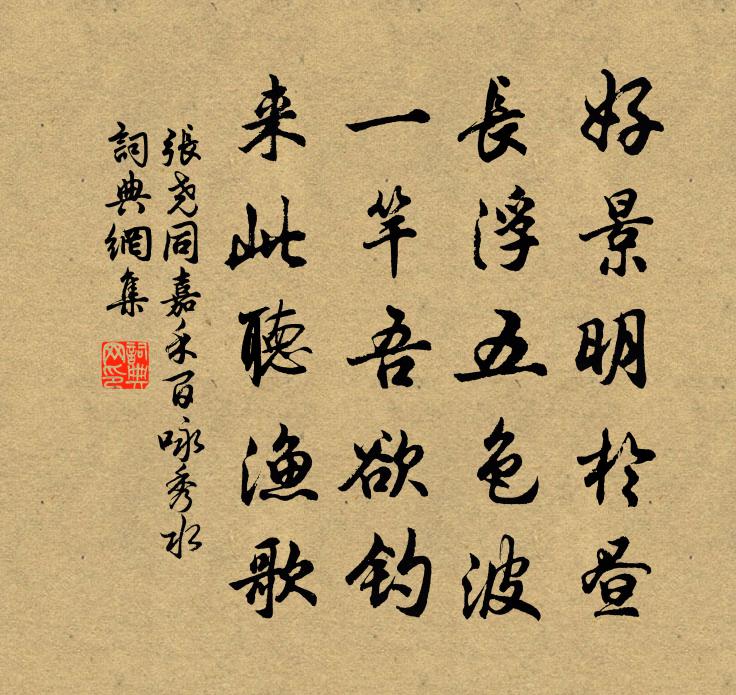 好景明於昼
長浮五色波
一竿吾欲釣
来此聽漁歌
張堯同嘉禾百咏秀水
詞典網集
詞典
网印